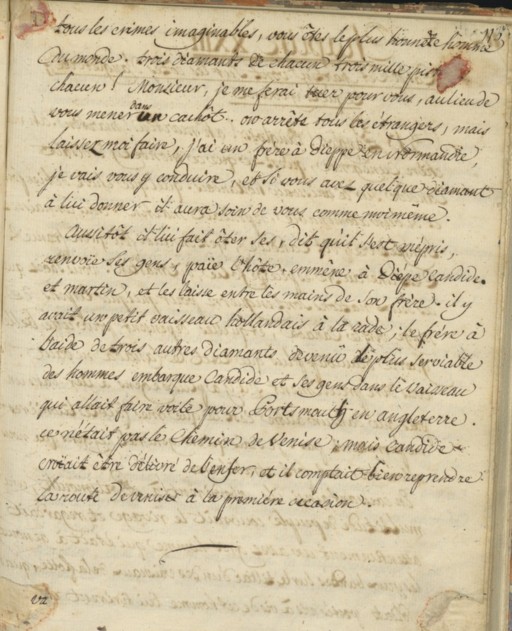 tous les crimes imaginables, vous êtes le plus honnête homme
du monde. trois diamants de chacun trois mille pist
chacun ! Monsieur, je me ferai tuer pour vous, au lieu de
vous mener dans un cachôt. on arrête tous les étrangers, mais
laissez moi faire, j'ai un frère à Dieppe en normandie,
je vais vous y conduire, et si vous avez quelque diamant
à lui donner il aura soin de vous comme moi même.
Aussitôt il lui fait ôter ses, dit qu'il s'est mépris,
renvoie ses gens, païe l'hôte, emmène à Dieppe Candide
et martin, et les laisse entre les mains de son frère. il y
avait un petit vaisseau hollandais à la rade ; le frère à
l'aide de trois autres diamants devenu le plus serviable
des hommes embarque Candide et ses gens dans le vaisseau
qui allait faire voile pour Portsmouth en angleterre.
ce n'était pas le Chemin de Venise, mais Candide
croïait être délivré de l'enfer, et il comptait bien reprendre
la route de venise à la première occasion.